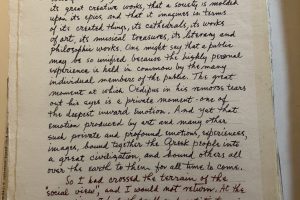 its great creative works, that a society is molded
upon its epics, and that it imagines in terms
of its created things, its cathedrals, its works
of art, its musical treasures, its literary and
philosophic works. One might say that a public
may be so unified because the highly personal
experience is held in common by the many
individual members of the public. The great
moment at which Oedipus in his remorse tears
out his eyes is a private moment - one of
the deepest inward emotion. And yet that
emotion produced by art and many other
such private and profound emotions, experiences,
images, bound together the Greek people into
a great civilization, and bound others all
over the earth to them for all time to come.
So I had crossed the terrain of the
"social view" and I would not return. At the